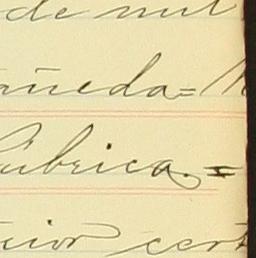 de mil
añeda=
Rúbrica.=
rior cert